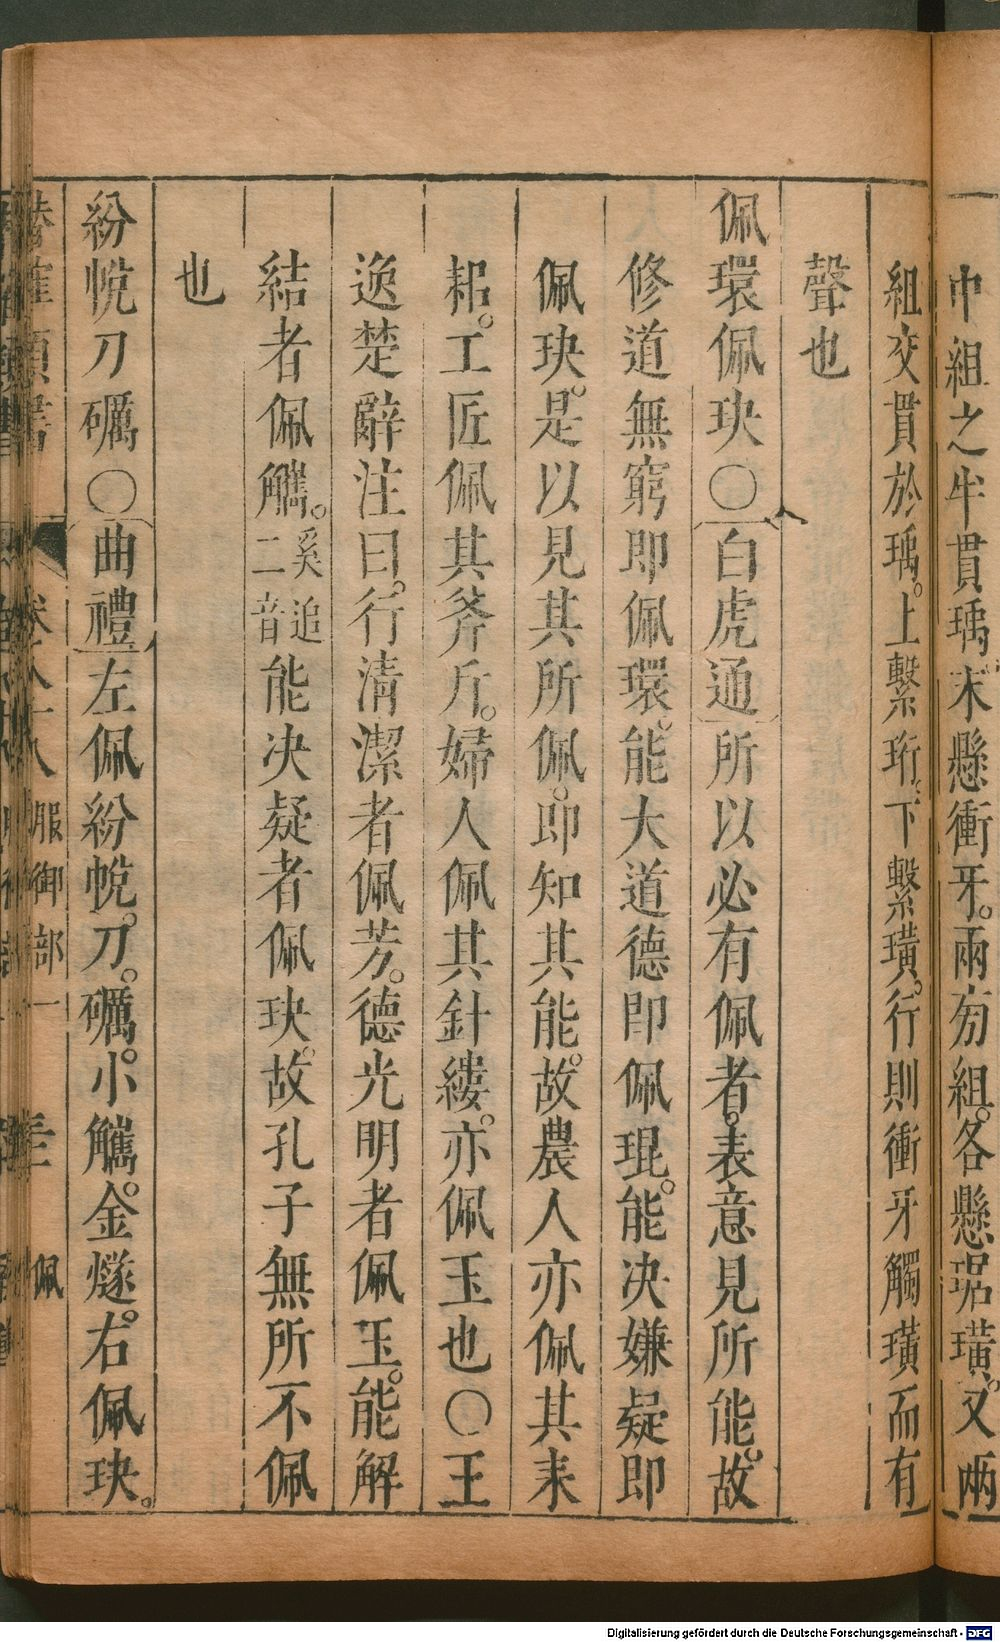 中組之半貫瑀末懸衝牙。兩旁組。各懸琚璜。又兩
組交貫於瑀。上繫珩。下繫璜。行則衝牙觸璜而有
聲也
佩環佩玦〇白虎通所以必有佩者。表意見所能。故
修道無窮即佩環。能大道德即佩琨。能決嫌疑即
佩玦。是以見其所佩。即知其能。故農人亦佩其耒
耜。工匠佩其斧斤。婦人佩其針縷。亦佩玉也〇王
逸楚辭注曰。行清潔者佩芳。德光明者佩玉。能解
結者佩觿。奚追二音能决疑者佩玦。故孔子無所不佩
也
紛帨刀礪〇曲禮左佩紛帨。刀。礪。小觿。金燧。右佩玦。
服御部一
佩
Digitalisierung gefördert durch die Deutsche Forschungsgemeinschaft - DFG